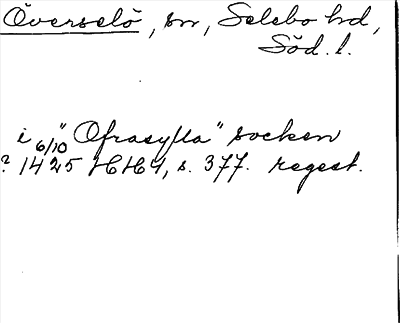 Överselö, sn, Selebo hd,
Söd. l.
i "Ofrasylla" socken
6/10
? 1425 HH4, s. 377. regest.